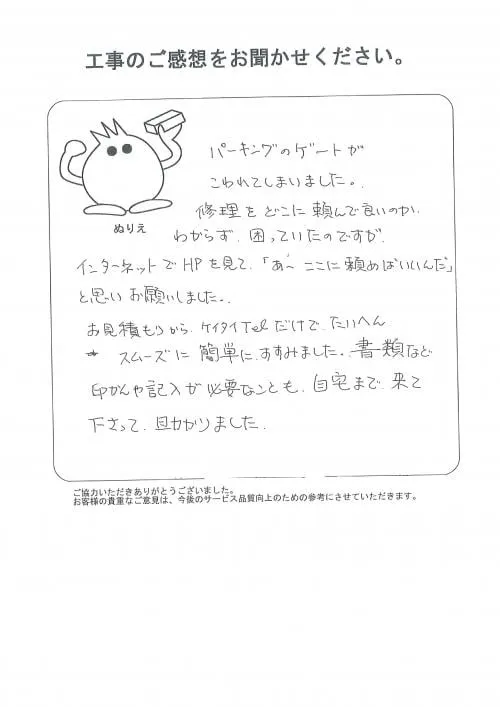 工事のご感想をお聞かせください。
ぬりえ
パーキングのゲートが
こわれてしまいました。
修理をどこに頼んで良いのか、
わからず、困っていたのですが、
インターネットでHPを見て、「あ〜ここに頼めばいいんだ」
と思いお願いしました。
お見積もりから、ケイタイTelだけで、たいへん
スムーズに簡単に、すすみました。書類など
印かんや記入が必要なことも、自宅まで来て
下さって、助かりました。
ご協力いただきありがとうございました。
お客様の貴重なご意見は、今後のサービス品質向上のための参考にさせていただきます。